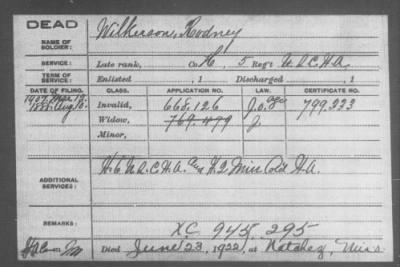 DEAD
NAME OF SOLDIER: Wilkerson, Rodney
SERVICE: Late rank, Co. H, 5 Reg't U.S.C.H.A.
TERM OF SERVICE: Enlisted , 1 Discharged , 1
DATE OF FILING. CLASS. APPLICATION NO. LAW. CERTIFICATE NO.
1907 Mar 18 Invalid, 668.126 799.333
1888 Aug Widow, 769.499
Minor,
ADDITIONAL SERVICES: H. 6 U.S.C.H.A. and H. 2 Miss Cold H.A.
REMARKS: XC 945 295
Died June 23, 1922, at Natchez, Miss